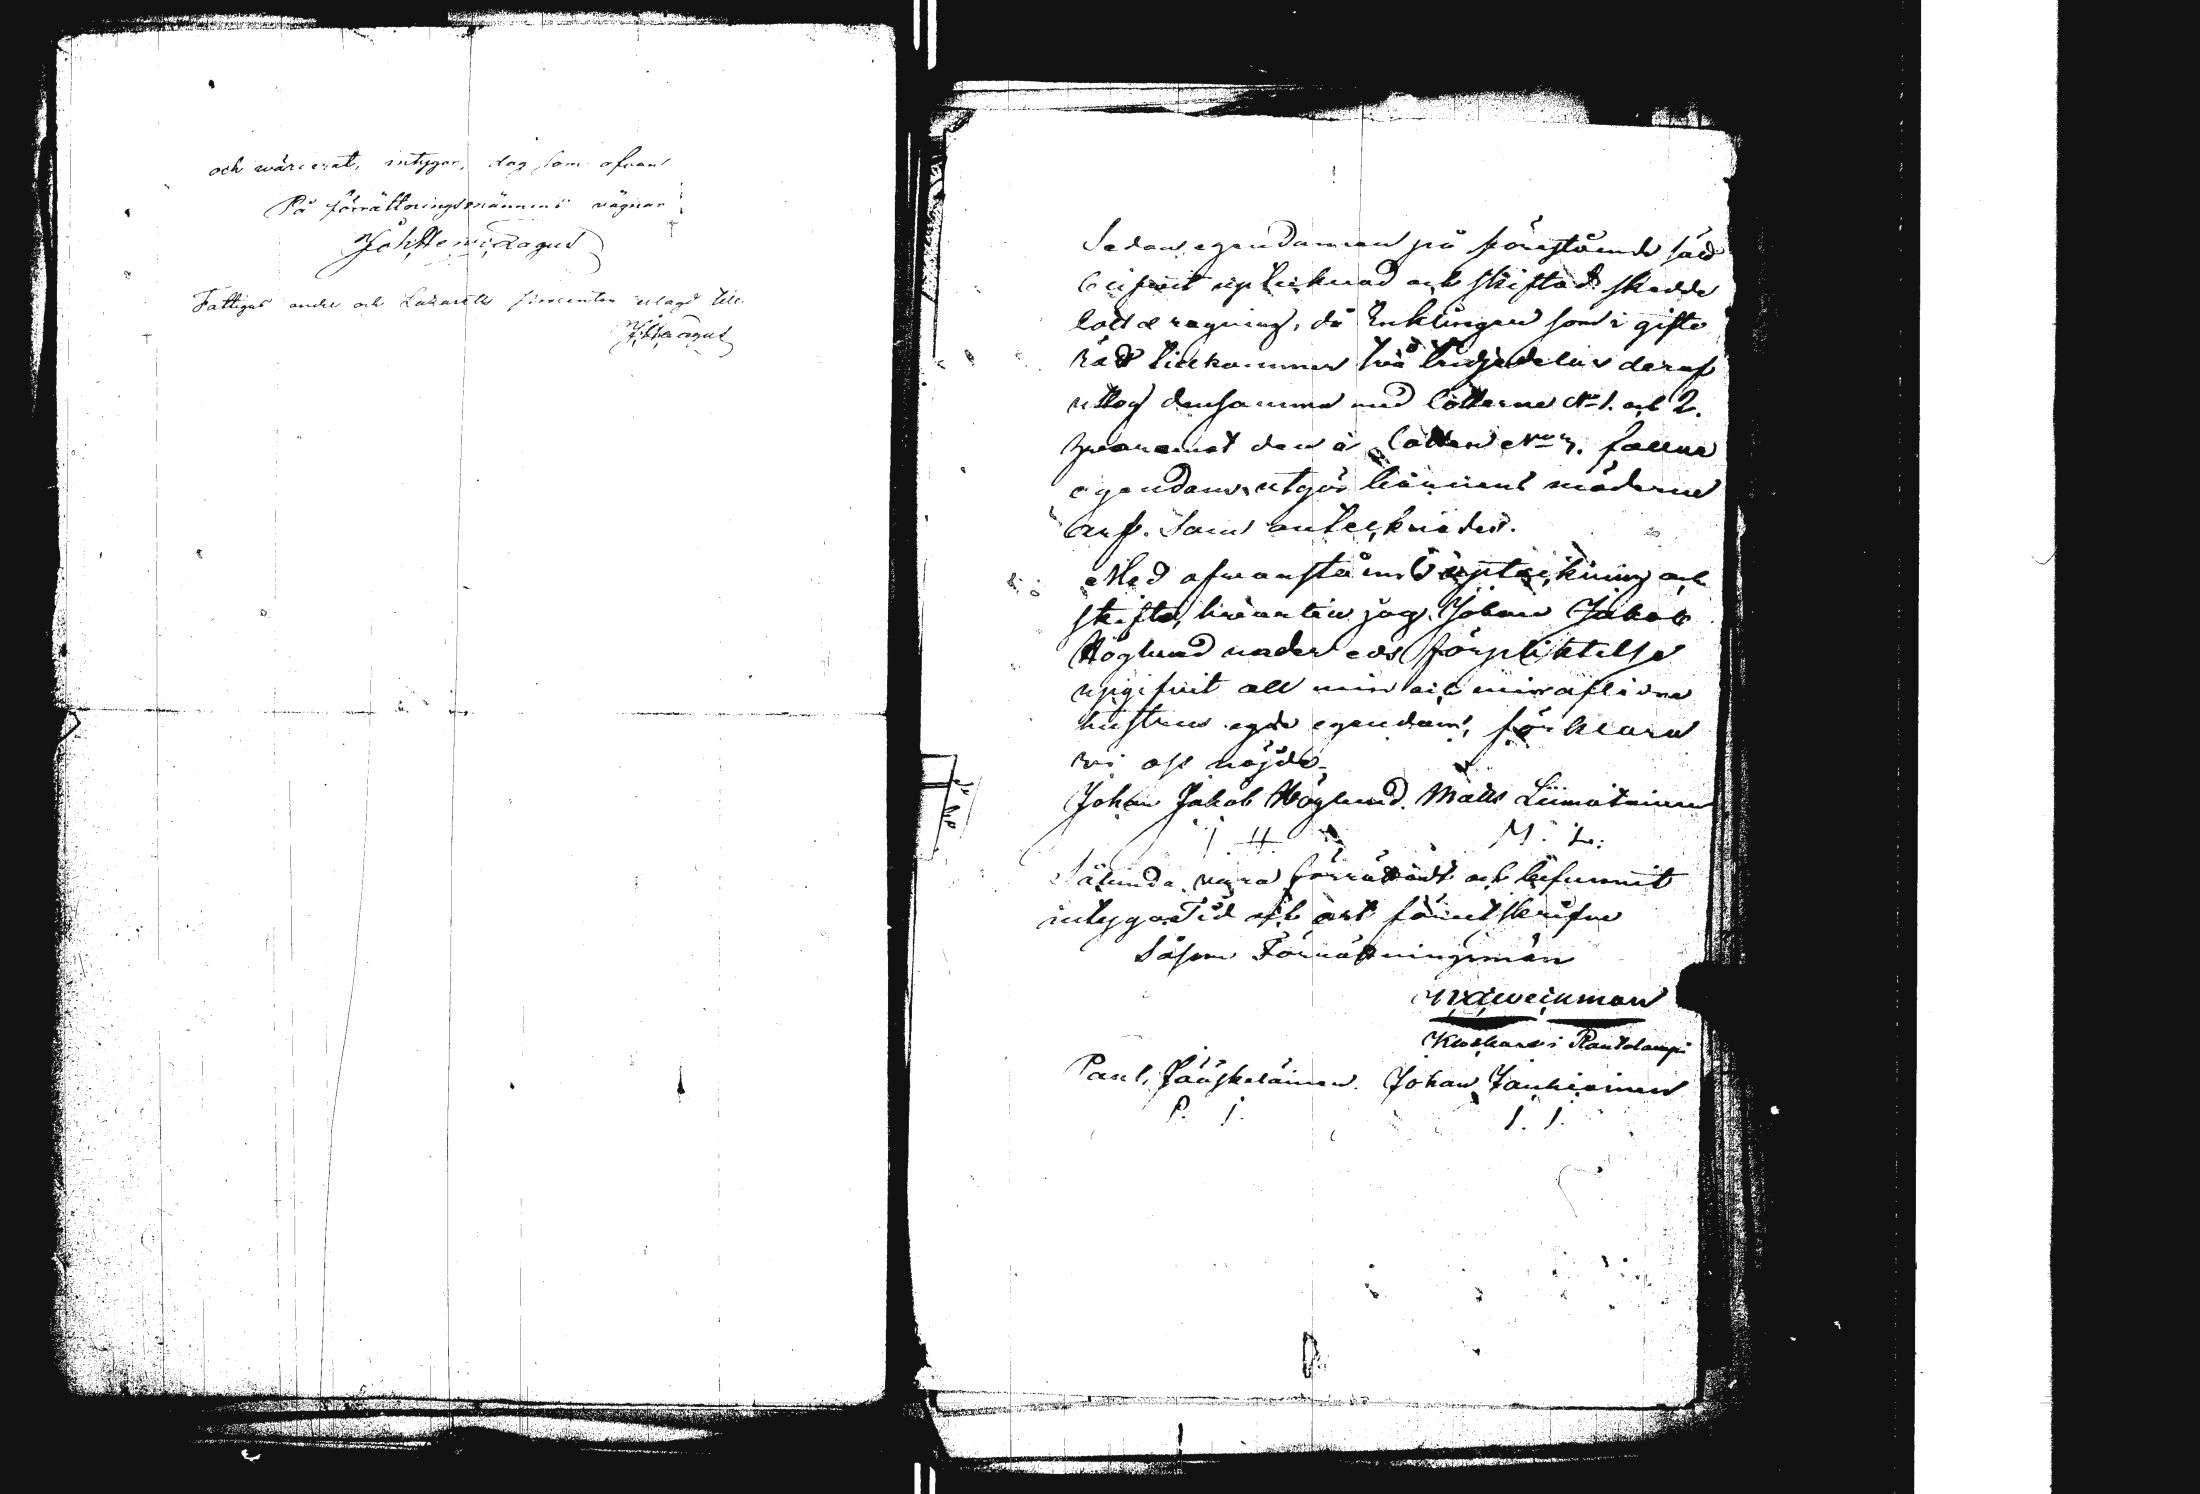 och wärderat, intygar, dag som ofvan
På förrättningsmännens vägnar
Joh Henr Lagus
Fattigas andel och Lazaretts procenten uttagit till.
JHLagus
Sedan egendomen på förestående sätt
blifvit uptecknad och skiftad skedde
lottdragning, då Enklingen som i gifto
rätt tillkommer två tridjedelar deraf
uttog densamma med lotterne No 1. och 2.
hvaremot den å lotten No 3. fallne
egendom utgör barnens möderne
arf. Som antecknades.
Med ofvanstående upteckning och
skifte, hvartill jag Johan Jakob
Höglund under eds förpliktelse
upgifvit all min och min aflidna
hustrus egde egendom, förklara
vi oss nöjde.
Johan Jakob Höglund. Matts Liimatainen
J. H. M. L.
Sålunda vara förrättadt och befunnit
intygar Tid och ort förut skrifne
Såsom Förrättningsmän
Klockare i Rautalampi
Paul Jääskeläinen. Johan Jauhiainen
P. J. J. J.